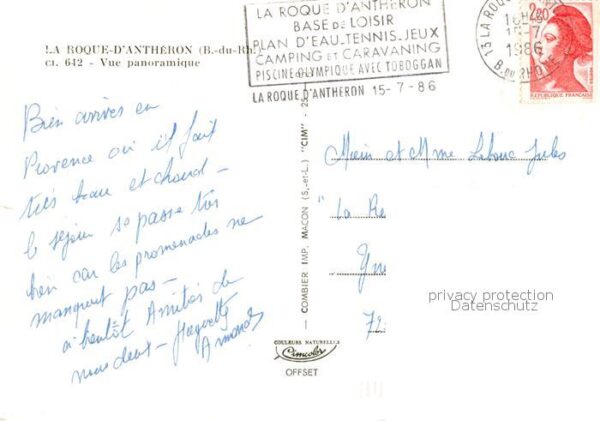 LA ROQUE-D'ANTHÉRON (B.-du-Rh.)
CI. 642 - Vue panoramique
LA ROQUE D'ANTHERON
BASE DE LOISIR
PLAN D'EAU_TENNIS_JEUX
CAMPING ET CARAVANING
PISCINE OLYMPIQUE AVEC TOBOGGAN
LA ROQUE D'ANTHERON 15-7-86
13 LA ROQUE
15-7
1986
B. DU RHONE
2,20
REPUBLIQUE FRANÇAISE
Bien arrivés en
Provence où il fait
très beau et chaud -
le séjour se passe très
bien car les promenades ne
manquent pas -
à bientôt Amitiés de
nous deux -
COMBIER IMP. MACON (S.-et-L.) "CIM"
et Mme
La
72
COULEURS NATURELLES
Cimcolor
OFFSET
privacy protection
Datenschutz